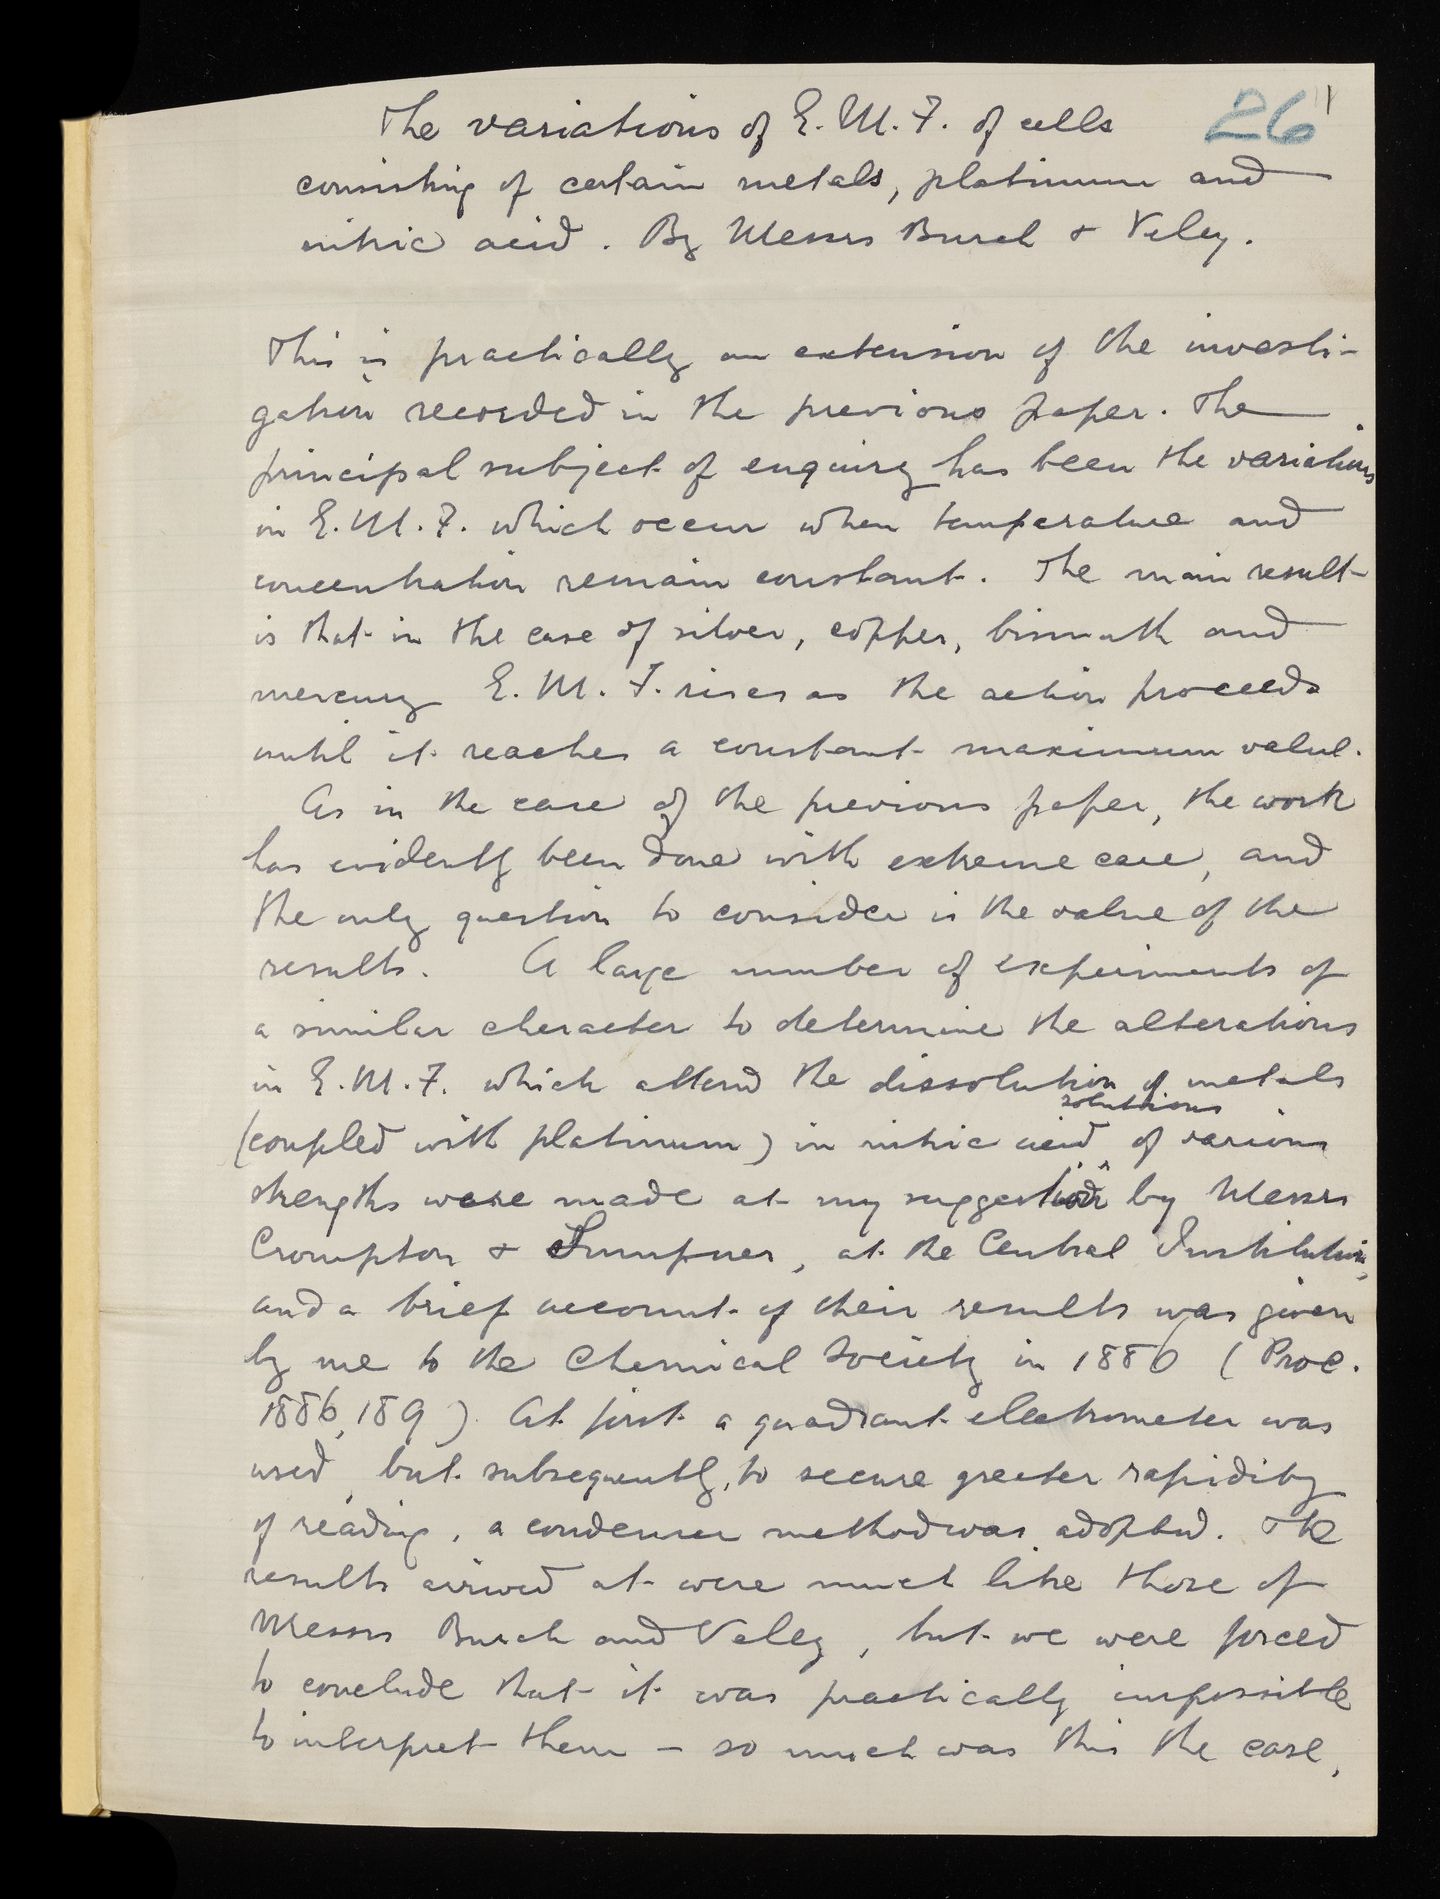 26
The variations of E.M.F. of cells
consisting of certain metals, platinum and
nitric acid. By Messrs Burch & Veley.
This is practically an extension of the investi-
gation recorded in the previous paper. The
principal subject of enquiry has been the variations
in E.M.F. which occur when temperature and
concentration remain constant. The main result
is that in the case of silver, copper, bismuth and
mercury E.M.F. rises as the action proceeds
until it reaches a constant maximum value.
As in the case of the previous paper, the work
has evidently been done with extreme care, and
the only question to consider is the value of the
results. A large number of experiments of
a similar character to determine the alterations
in E.M.F. which attend the dissolution of metals
solutions
(coupled with platinum) in nitric acid of various
strengths were made at my suggestion by Messrs
Crompton & Sumpner, at the Central Institution,
and a brief account of their results was given
by me to the Chemical Society in 1886 (Proc.
1886, 189). At first a quadrant electrometer was
used, but subsequently, to secure greater rapidity
of reading, a condenser method was adopted. The
results arrived at were much like those of
Messrs Burch and Veley, but we were forced
to conclude that it was practically impossible
to interpret them – so much was this the case,